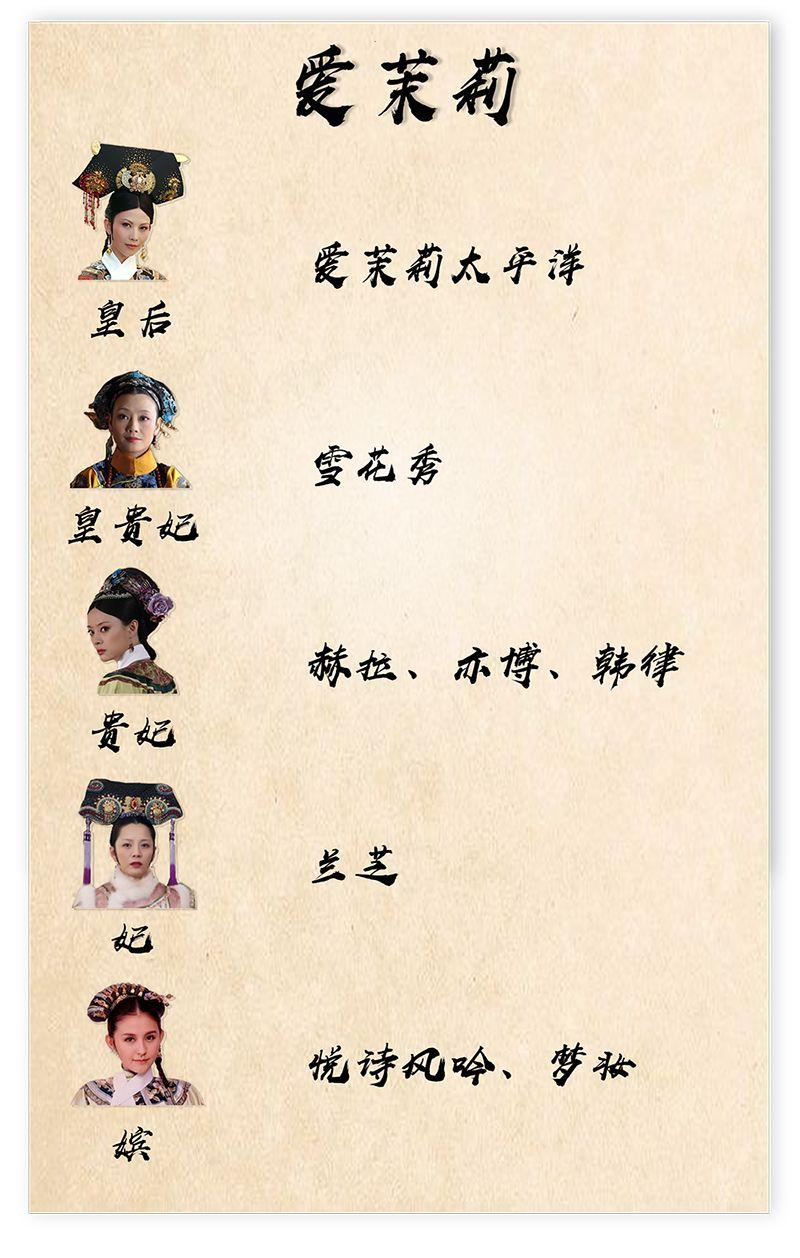 爱茉莉
爱茉莉太平洋
皇后
雪花秀
皇贵妃
赫拉、亦博、韩律
贵妃
兰芝
妃
悦诗风吟、梦妆
嫔